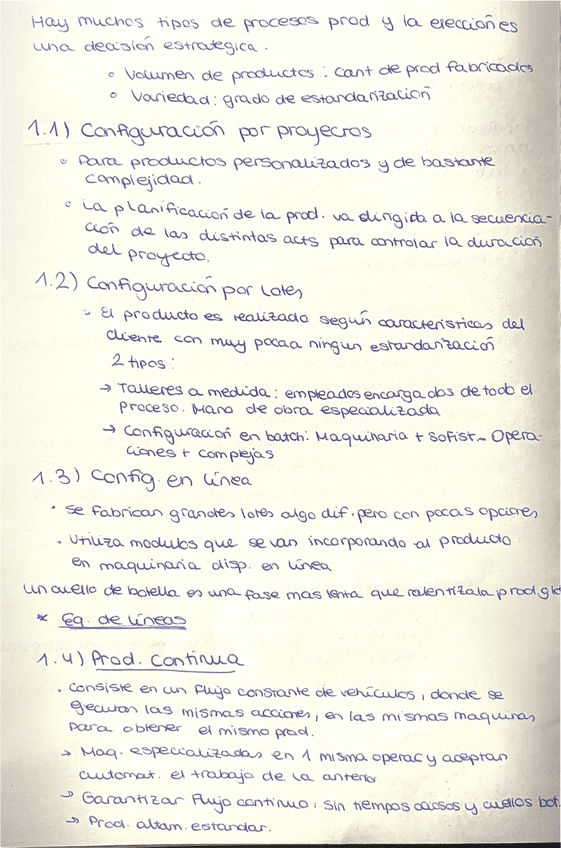 Hay muchos tipos de procesos prod y la elección es
una decisión estrategica.
◦ Volumen de productos : cant de prod fabricados
◦ Variedad: grado de estandarización
1.1) Configuración por proyectos
◦ Para productos personalizados y de bastante
complejidad.
◦ La planificación de la prod. va dirigida a la secuencia-
ción de las distintas acts para controlar la duración
del proyecto.
1.2) Configuración por Lotes
◦ El producto es realizado según caracteristicas del
cliente con muy poca a ningun estandarización
2 tipos :
→ Talleres a medida : empleados encargados de todo el
proceso. Mano de obra especializada
→ Configuración en batch: Maquinaria + Sofist. - Opera-
ciones + complejas
1.3) Config. en línea
• Se fabrican grandes lotes algo dif. pero con pocas opciones
• Utiliza modulos que se van incorporando al producto
en maquinaria disp. en línea
Un cuello de botella es una fase mas lenta que ralentiza la prod glo
* Eq. de líneas
1.4) Prod. Continua
• Consiste en un flujo constante de vehículos, donde se
ejecutan las mismas acciones, en las mismas maquinas
para obtener el mismo prod.
→ Maq. especializadas en 1 misma operac y aceptan
automat. el trabajo de la anterior
→ Garantizar flujo continuo, sin tiempos ociosos y cuellos bot.
→ Prod. altam. estandar.